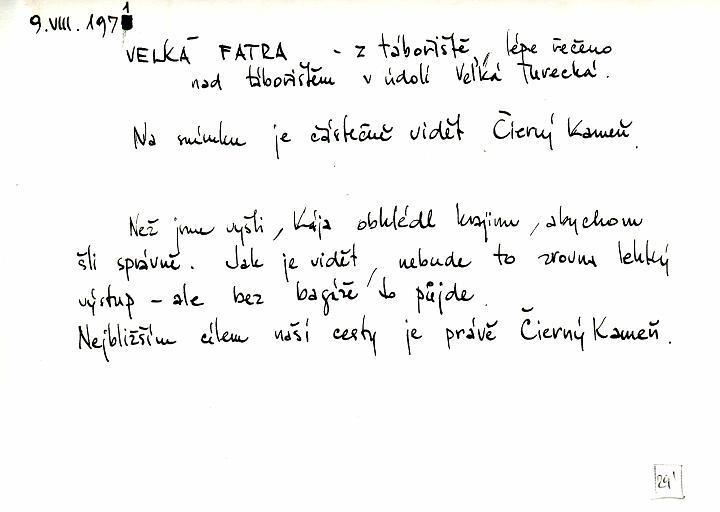 9.VIII.1971
VELKÁ FATRA - z tábořiště, lépe řečeno
nad tábořištěm v údolí Velká Turecká.
Na snímku je částečně vidět Čierný Kameň.
Než jsme vyšli, Kája obhlédl krajinu, abychom
šli správně. Jak je vidět, nebude to zrovna lehký
výstup - ale bez bagáže to půjde.
Nejbližším cílem naší cesty je právě Čierný Kameň.
29'